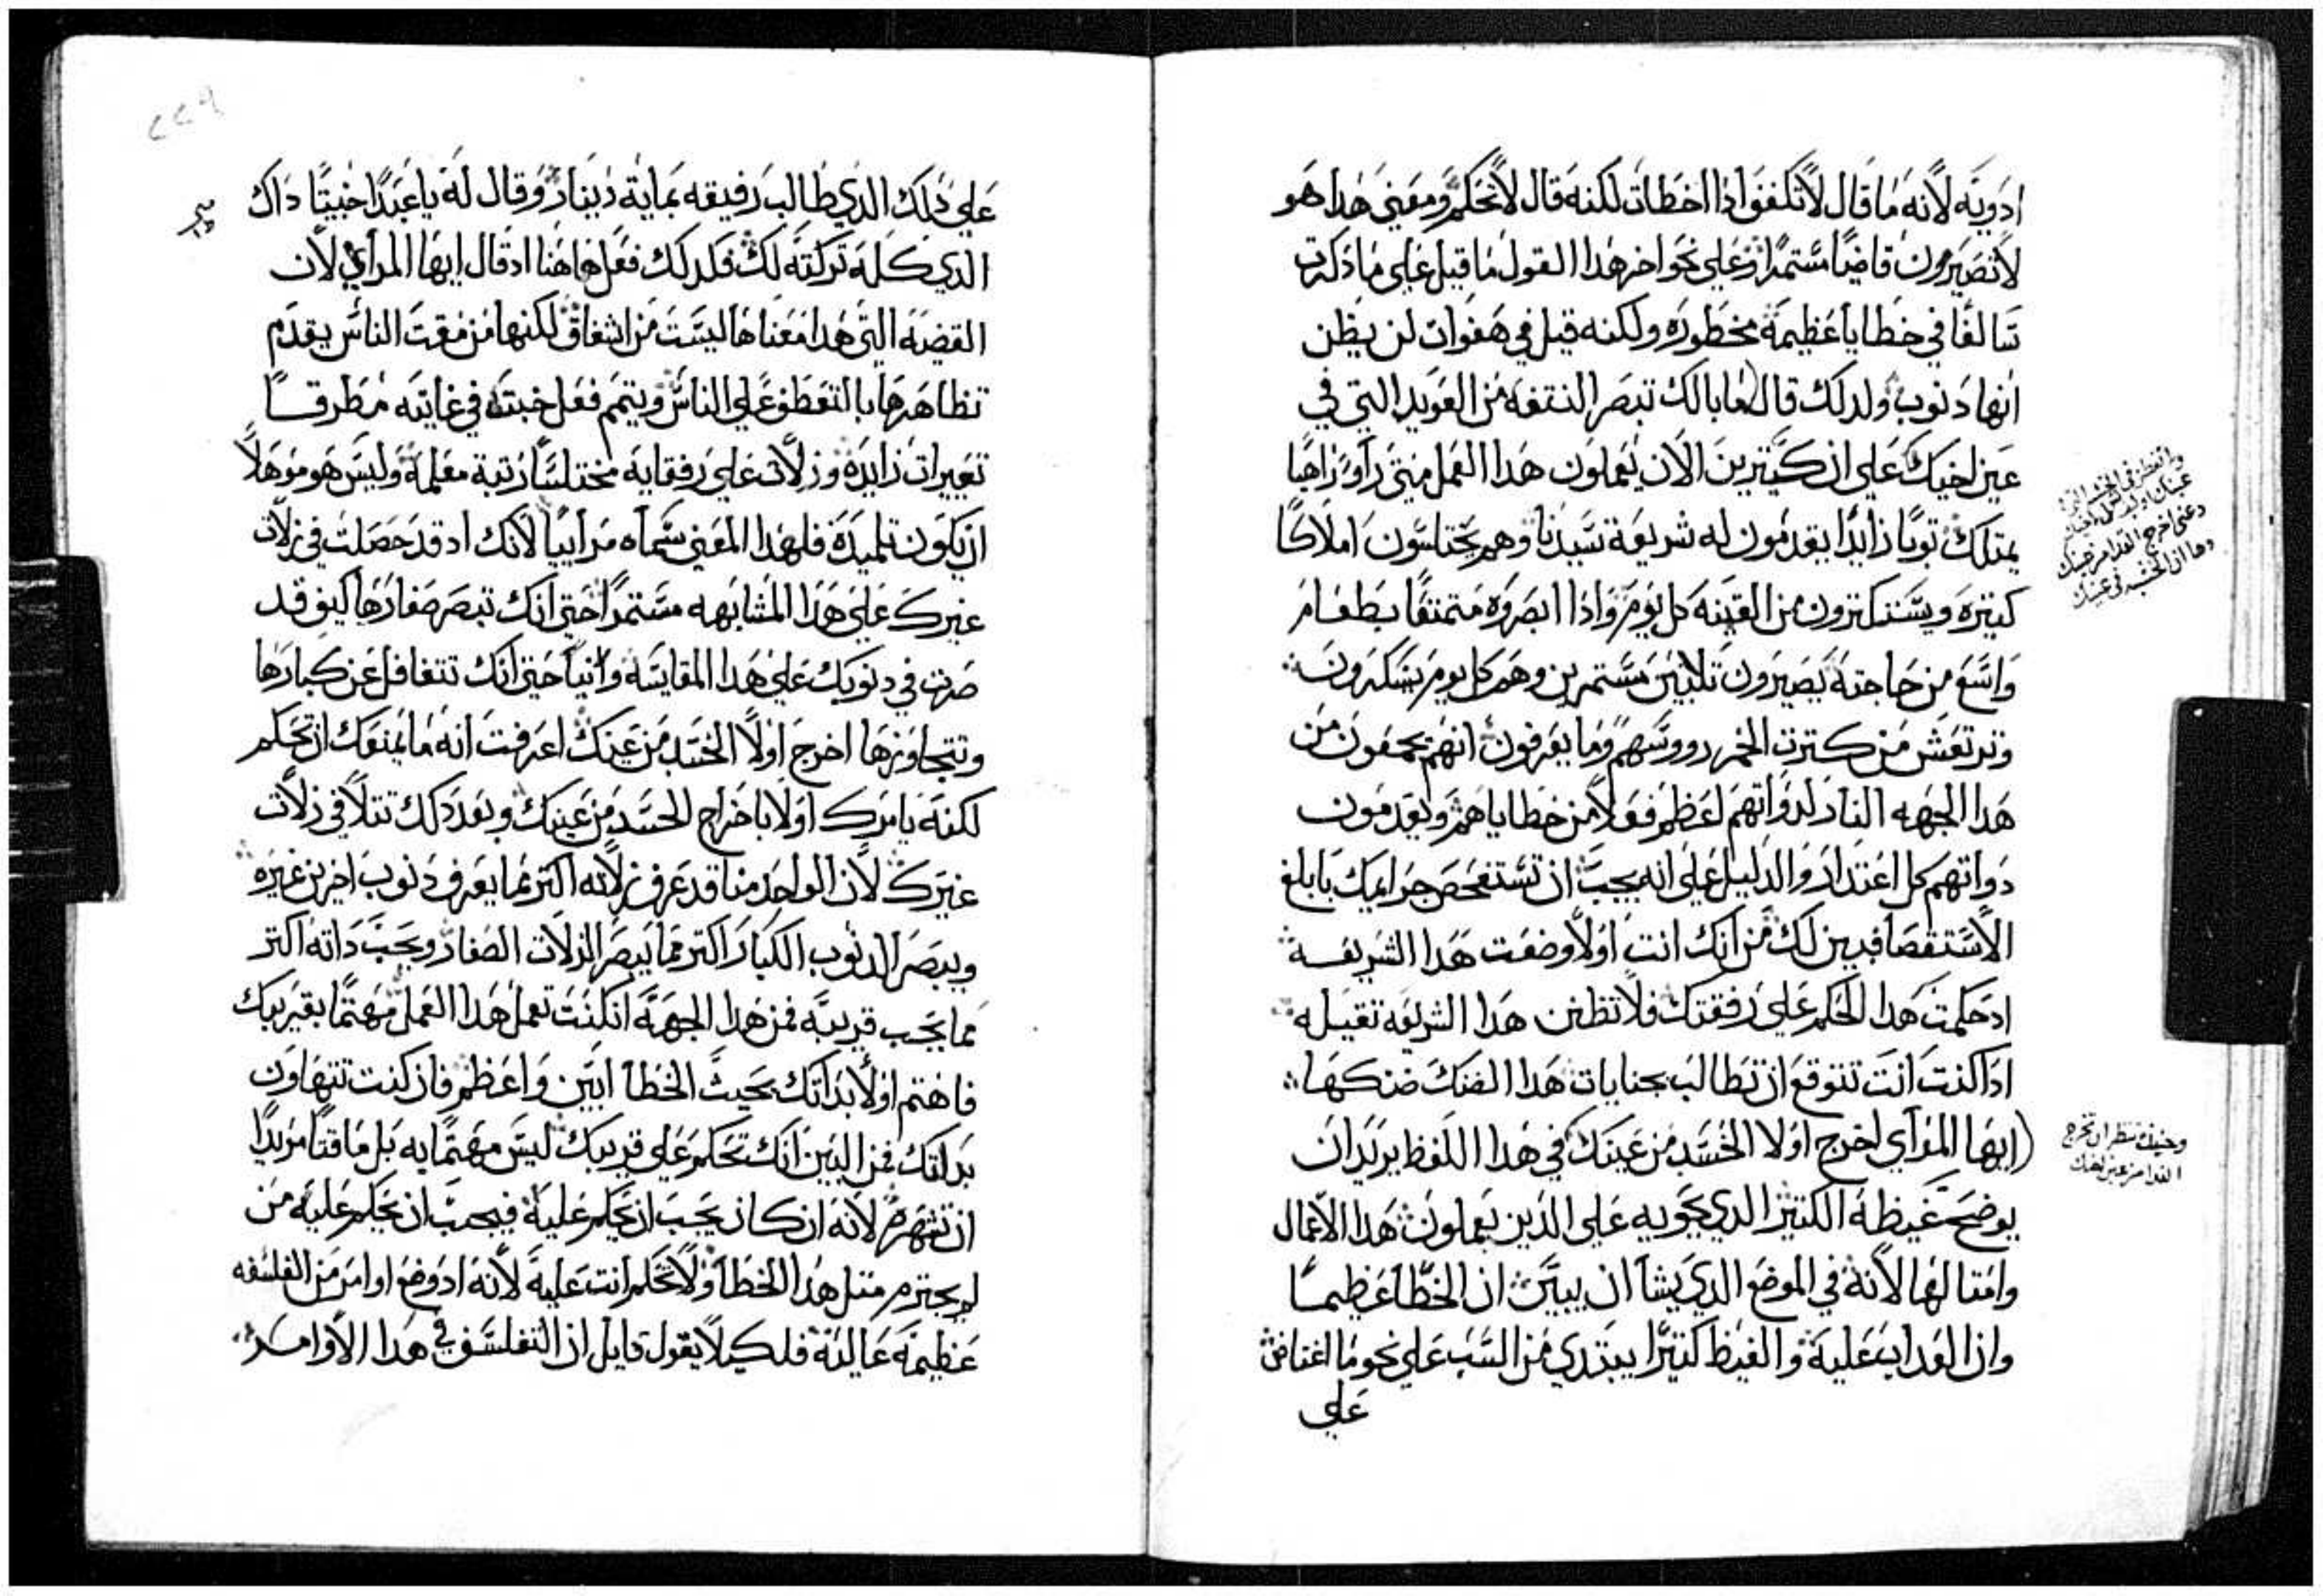 ادويه لانه ما قال لا تكففوا اذا اخطات لكنه قال لا تحكم ومعني هدا هو
لا تصيرون قاضيا مستمرا وعلي نحو اخر هدا القول ما قيل علي ما ذكرت
سالفا في خطايا عظيمة محظوره ولكنه قيل في هفوات لن يظن
انها دنوب ولدلك قال (ما بالك تبصر النتفه من العويد التي في
عين اخيك علي ان كتيرين الان يعملون هدا العمل متي راو راهبا
يمتلك توبا زايدا يقدمون له شريعة سيدنا وهم يختلسون املاكا
كتيره ويستكترون من القينه كل يوم وادا ابصروه متمتعا بطعام
واسع من حاجته يصيرون تلابين مستمرين وهم كل يوم يسكرون
وترتعش من كترت الخمر رووسهم وما يعرفون انهم يجمعون من
هدا الجهه النار لدواتهم اعظم فعلا من خطاياهم ويعدمون
دواتهم كل اعتدار والدليل علي انه يجب ان تستفحص جرايمك بابلغ
الاستقصا فبين لك من انك انت اولا وضعت هدا الشريعه
اد حكمت هدا الحكم علي رفقتك فلا تظنن هدا الشريعه تقيله
ادا كنت انت تتوقع ان تطالب بجنايات هدا الضنك ضنكها
(ايها المرآي اخرج اولا الخشبه من عينك في هدا اللفظ يريد ان
يوضح غيظه الكتير الدي يحويه علي الدين يعملون هدا الاعمال
وامتالها لانه في الموضع الدي يشا ان يبين ان الخطا عظيما
وان العداب عليه والغيظ كتيرا يبتدي من السب علي نحو ما اغتاض
علي
وحينئد تنظر ان تخرج
القدا من عين اخيك
علي دلك الدي طالب رفيقه بماية دينار وقال له يا عبدا خبيتا داك
الدي كله تركته لك فكدلك فعل هاهنا اد قال ايها المرآي لان
القضيه التي هدا معناها ليست من اشفاق لكنها من مقت الناس يقدم
تظاهرها بالتعطف علي الناس ويتمم فعل خبته في غايته مطرقا
تعييرات زايده وزلات علي رفقايه مختلسا رتبة معلمه وليس هو موهلا
ان يكون تلميده فلهدا المعني سماه مراييا لانك اد قد حصلت في زلات
غيرك علي هدا المشابهه مستمرا حتي انك تبصر صغارها كيف قد
صرت في دنوبك علي هدا المقايسه وانيا حتي انك تتغافل عن كبارها
وتتجاوزها اخرج اولا الخشبه من عينك اعرفت انه ما يمنعك ان تحكم
لكنه يامرك اولا باخراج الخشبه من عينك وبعد دلك تتلافي زلات
غيرك لان الواحد منا قد عرف زلاته اكتر مما يعرف دنوب اخرين غيره
ويبصر الدنوب الكبار اكتر مما يبصر الزلات الصغار ويحب داته اكتر
مما يحب قريبه فمن هدا الجهه ان كنت تعمل هدا العمل مهتما بقريبك
فاهتم اولا بداتك بحيث الخطا ابين واعظم فان كنت تتهاون
بداتك فمن البين انك تحكم علي قريبك ليس مهتما به بل ماقتا مريدا
ان تشهره لانه ان كان يجب ان يحكم عليه فيجب ان يحكم عليه من
لم يجترم متل هدا الخطا ولا تحكم انت عليه لانه اد وضع اوامر من الفلسفه
عظيمه عاليه فلكيلا يقول قايل ان التفلسف في هدا الاوامر
٢٢٩